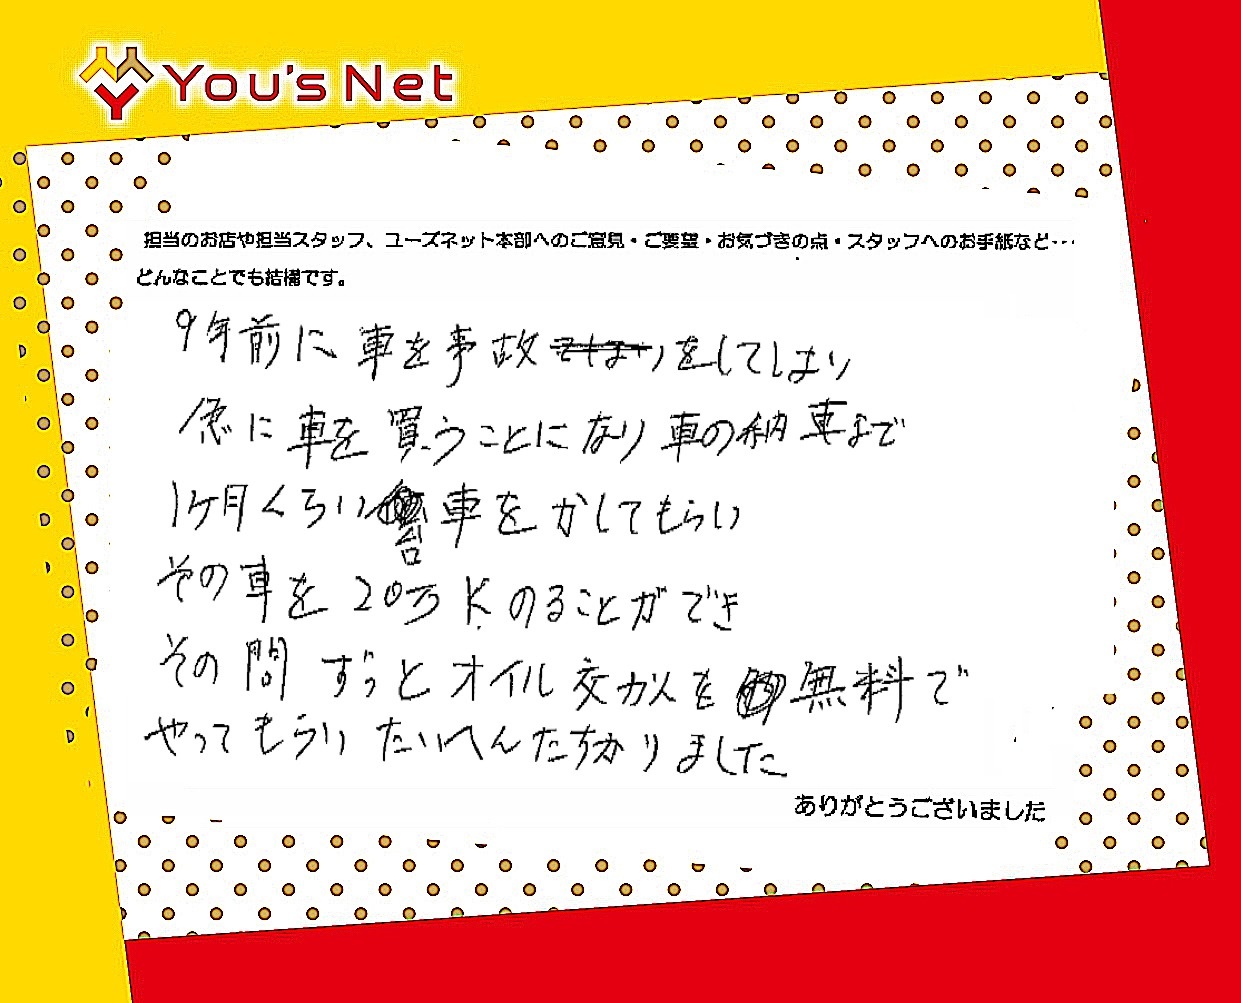 You's Net
担当のお店や担当スタッフ、ユーズネット本部へのご意見・ご要望・お気づきの点・スタッフへのお手紙など…
どんなことでも結構です。
9年前に車を事故をしてしまい
急に車を買うことになり車の納車まで
1ヶ月くらい台車をかしてもらい
その車を20万Kのることができ
その間ずっとオイル交カンを無料で
やってもらいたいへんたすかりました
ありがとうございました